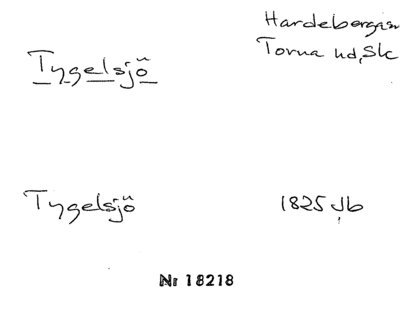 Hardebergasn
Tygelsjö Torna hd, Sk
Tygelsjö 1825 Jb
Nr 18218